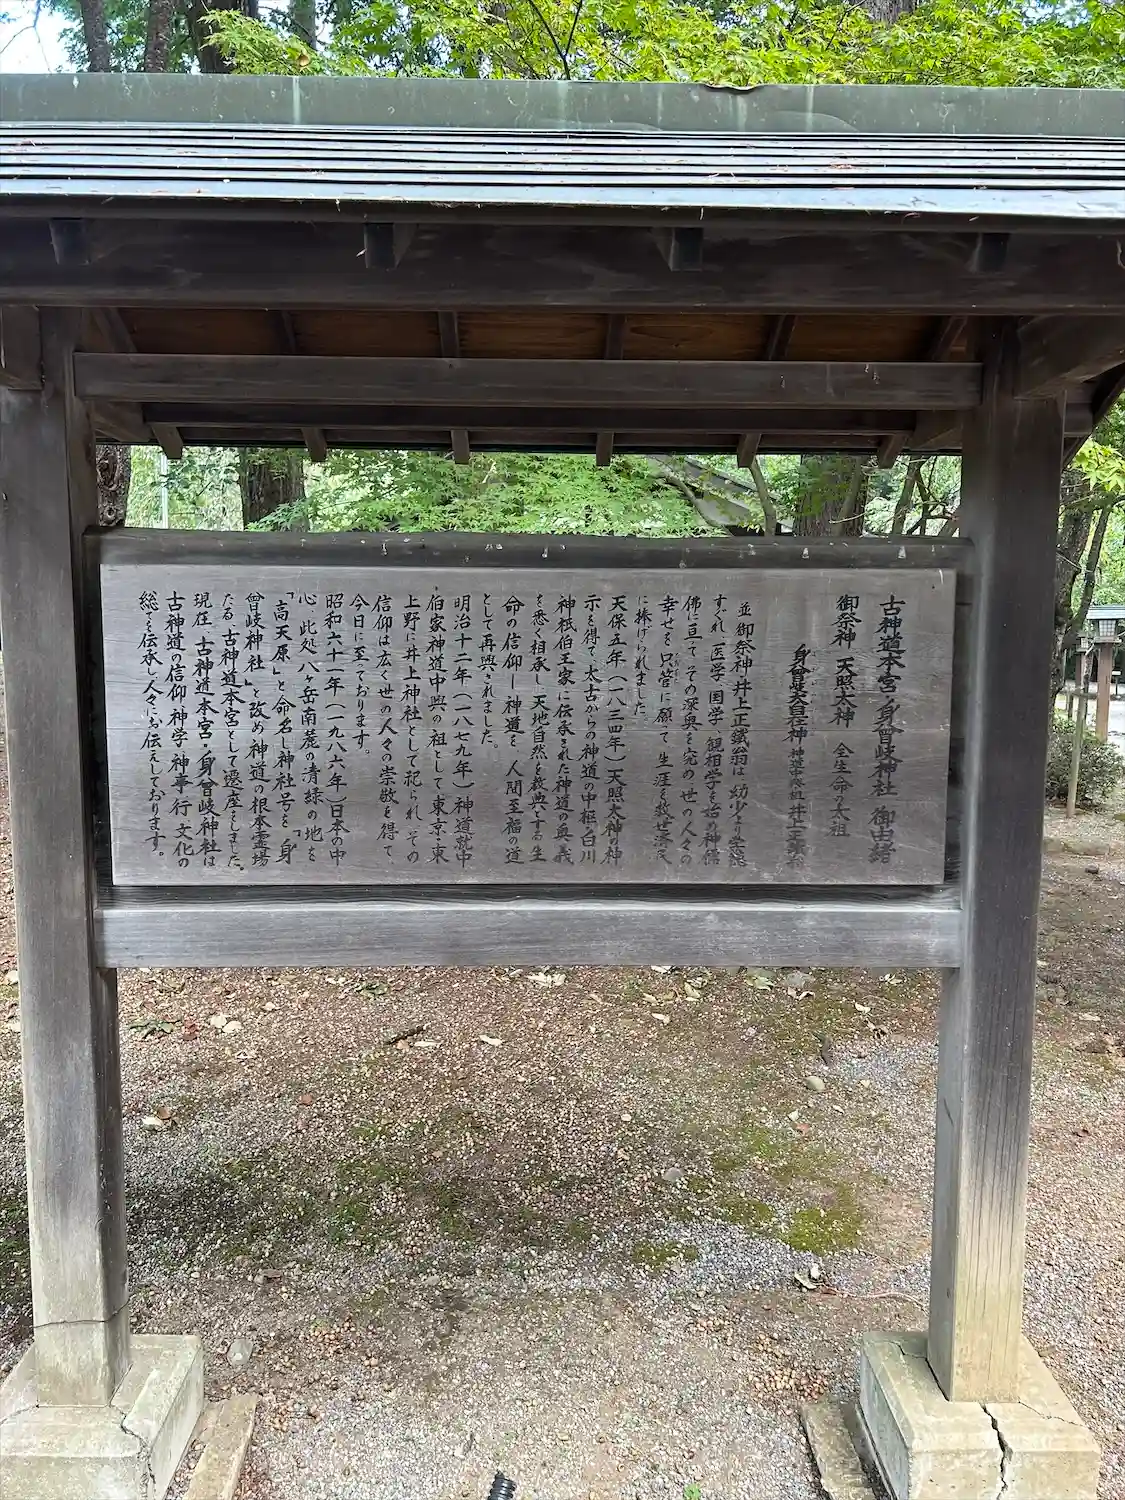 古神道本宮・身曾岐神社 御由緒
御祭神 天照太神 全生命の太祖
身曾岐自在神 神道中興の祖 井上正鐵翁
並 御祭神・井上正鐵翁は、幼少より学徳
すぐれ、医学、国学、観相学を始め、神儒
佛に亘って、その深奥を究め、世の人々の
幸せを只管に願って、生涯を救世済民
に捧げられました。
天保五年(一八三四年)天照太神の神
示を得て、太古からの神道の中枢・白川
神祇伯王家に伝承された神道の奥義
を悉く相承し、天地自然を教典とする生
命の信仰―神道を、人間至福の道
として再興されました。
明治十二年(一八七九年)神道就中
伯家神道中興の祖として、東京・東
上野に井上神社として祀られ、その
信仰は広く世の人々の崇敬を得て、
今日に至っております。
昭和六十一年(一九八六年)日本の中
心、此処八ヶ岳南麓の清緑の地を
「高天原」と命名し、神社号を「身
曾岐神社」と改め、神道の根本霊場
たる、古神道本宮として遷座をしました。
現在、古神道本宮・身曾岐神社は
古神道の信仰・神学・神事・行・文化の
総てを伝承し、人々にお伝えしております。